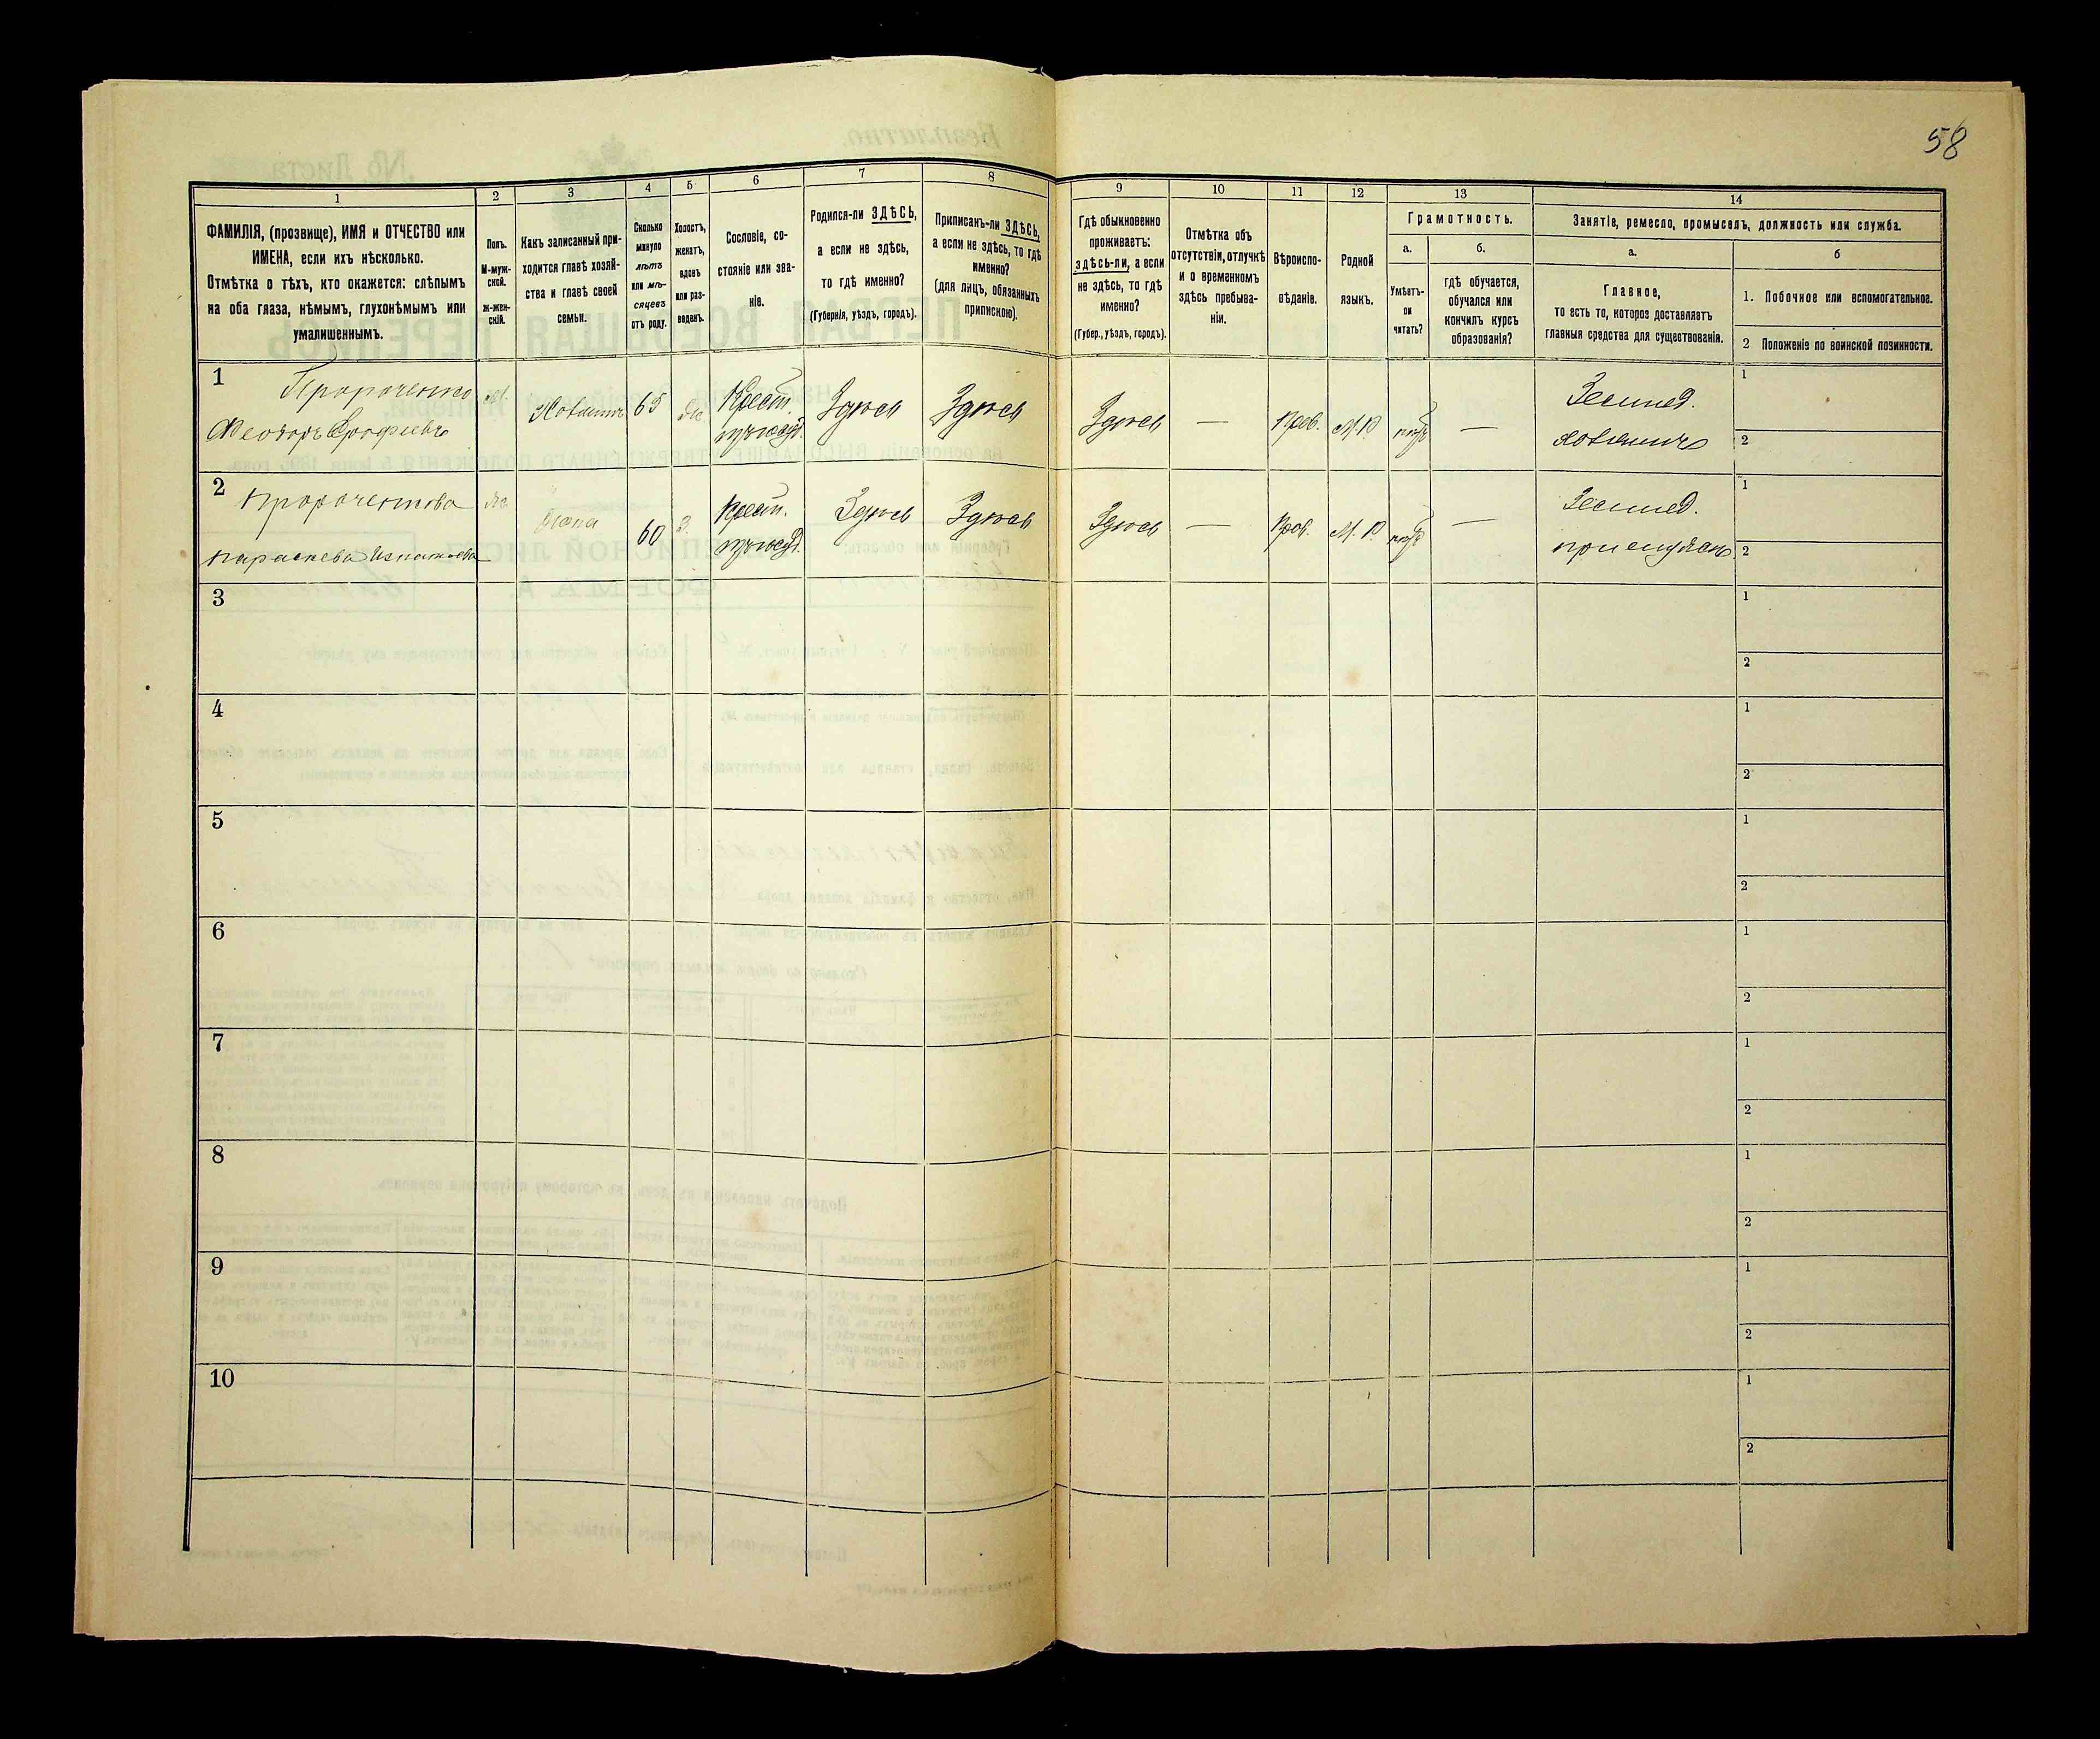 58
1
ФАМИЛІЯ, (прозвище), ИМЯ и ОТЧЕСТВО или
ИМЕНА, если ихъ нѣсколько.
Отмѣтка о тѣхъ, кто окажется: слѣпымъ
на оба глаза, нѣмымъ, глухонѣмымъ или
умалишеннымъ.
2
Полъ.
М-муж-
ской.
ж-жен-
скій.
3
Какъ записанный при-
ходится главѣ хозяй-
ства и главѣ своей
семьи.
4
Сколько
минуло
лѣтъ
или мѣ-
сяцевъ
отъ роду.
5
Холостъ,
женатъ,
вдовъ
или раз-
веденъ.
6
Сословіе, со-
стояніе или зва-
ніе.
7
Родился-ли ЗДѢСЬ,
а если не здѣсь,
то гдѣ именно?
(Губернія, уѣздъ, городъ).
8
Приписанъ-ли ЗДѢСЬ,
а если не здѣсь, то гдѣ
именно?
(для лицъ, обязанныхъ
припискою).
9
Гдѣ обыкновенно
проживаетъ:
здѣсь-ли, а если
не здѣсь, то гдѣ
именно?
(Губер., уѣздъ, городъ).
10
Отмѣтка объ
отсутствіи, отлучкѣ
и о временномъ
здѣсь пребыва-
ніи.
11
Вѣроиспо-
вѣданіе.
12
Родной
языкъ.
13
Грамотность.
а.
Умѣетъ-
ли
читать?
б.
гдѣ обучается,
обучался или
кончилъ курсъ
образованія?
14
Занятіе, ремесло, промыселъ, должность или служба.
а.
Главное,
то есть то, которое доставляетъ
главныя средства для существованія.
б
1. Побочное или вспомогательное.
2 Положеніе по воинской повинности.
1
Пророченко
Феодоръ
М.
Хозяинъ
65
Крест.
Здѣсь
Здѣсь
Здѣсь
—
Прав.
М.Р.
нѣтъ
—
Землед.
хозяинъ
1
2
2
Пророченкова
Параскева Игнатьева
Жена
60
З.
Крест.
Здѣсь
Здѣсь
Здѣсь
—
Прав.
М.Р.
нѣтъ
—
Землед.
при мужѣ
1
2
3
1
2
4
1
2
5
1
2
6
1
2
7
1
2
8
1
2
9
1
2
10
1
2